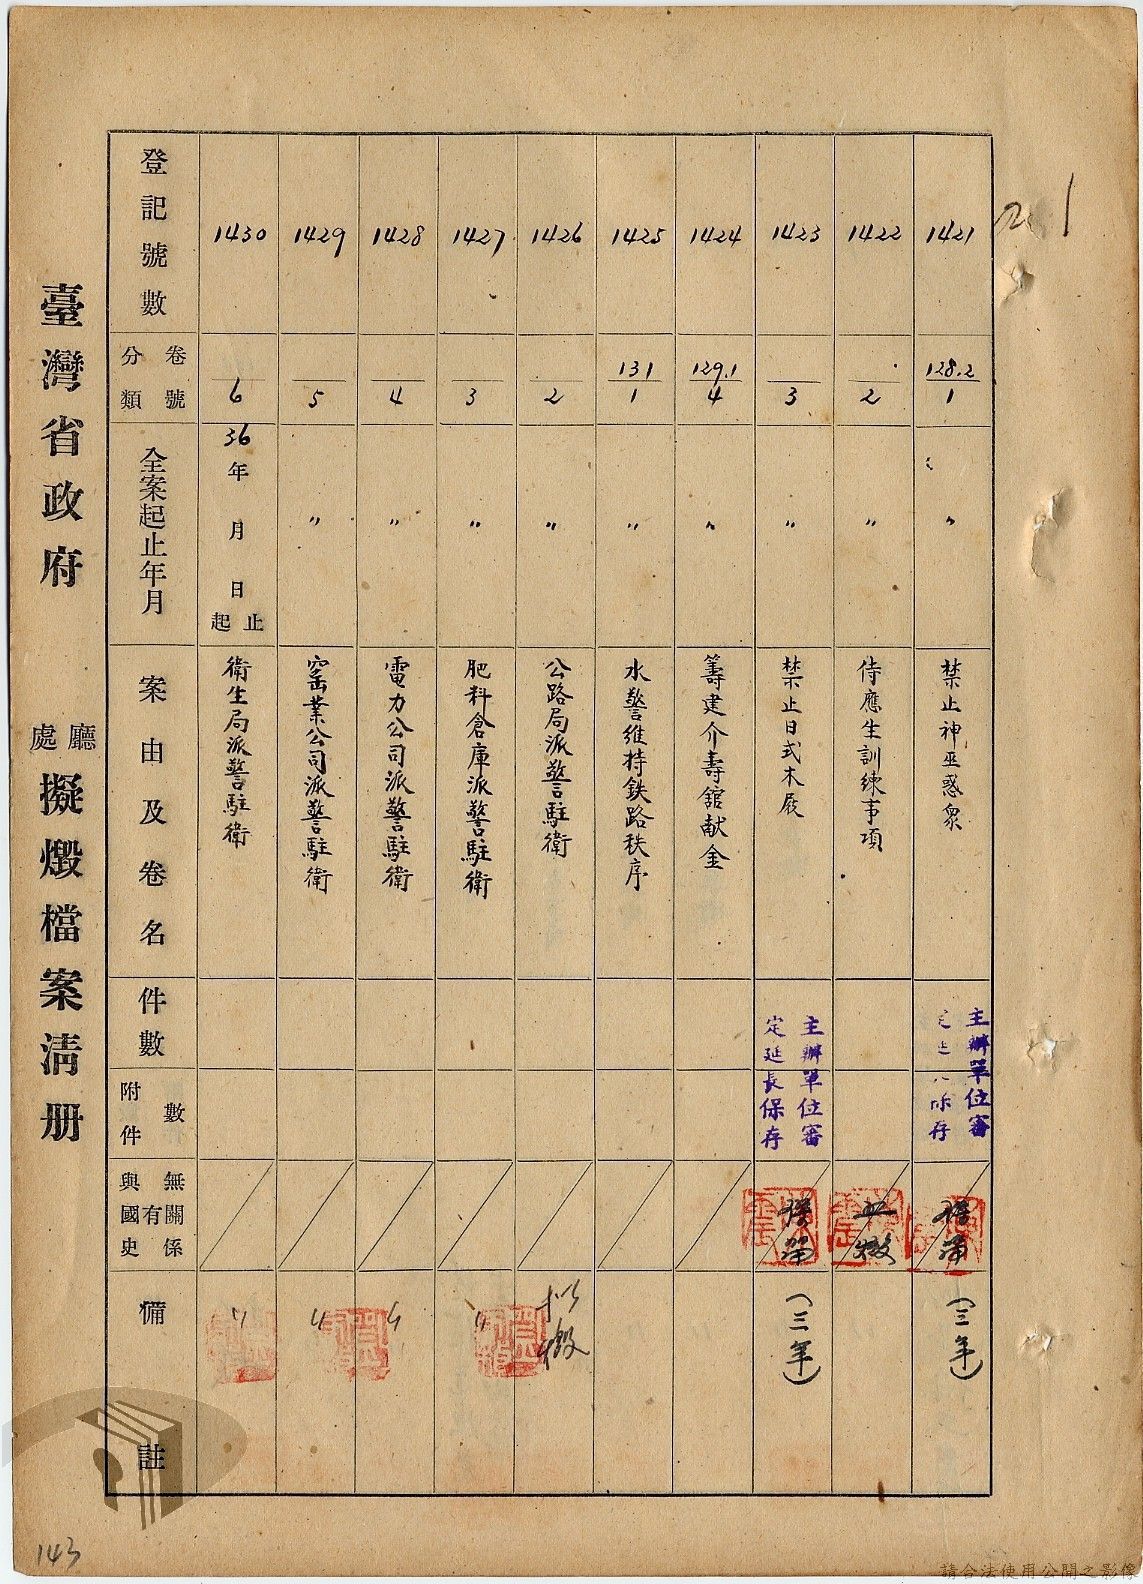 臺灣省政府 廳處 擬燬檔案清册
登記號數
卷號
分類
全案起止年月
案由及卷名
件數
附件數
與國史有無關係
備註
1421
128.2
1
〃
禁止神巫惑衆
主辦單位審
定延長保存
(三年)
1422
2
〃
侍應生訓練事項
1423
3
〃
禁止日式木屐
主辦單位審
定延長保存
(三年)
1424
129.1
4
〃
籌建介壽舘献金
1425
131
1
〃
水警維持鉄路秩序
1426
2
〃
公路局派警駐衛
拟燬
1427
3
〃
肥料倉庫派警駐衛
〃
1428
4
〃
電力公司派警駐衛
〃
1429
5
〃
窑業公司派警駐衛
〃
1430
6
36年 月 日起止
衛生局派警駐衛
〃
143
請合法使用公開之影像